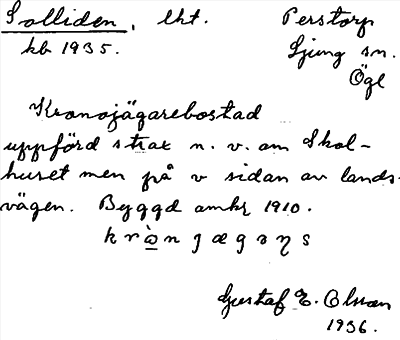 Solliden, lht. Perstorp
kb 1935. Ljung sn.
Ögl
Kronojägarebostad
uppförd strax n. v. om Skol-
huset men på v sidan av lands-
vägen. Byggd omkr 1910.
Gustaf E. Olsson
1936.